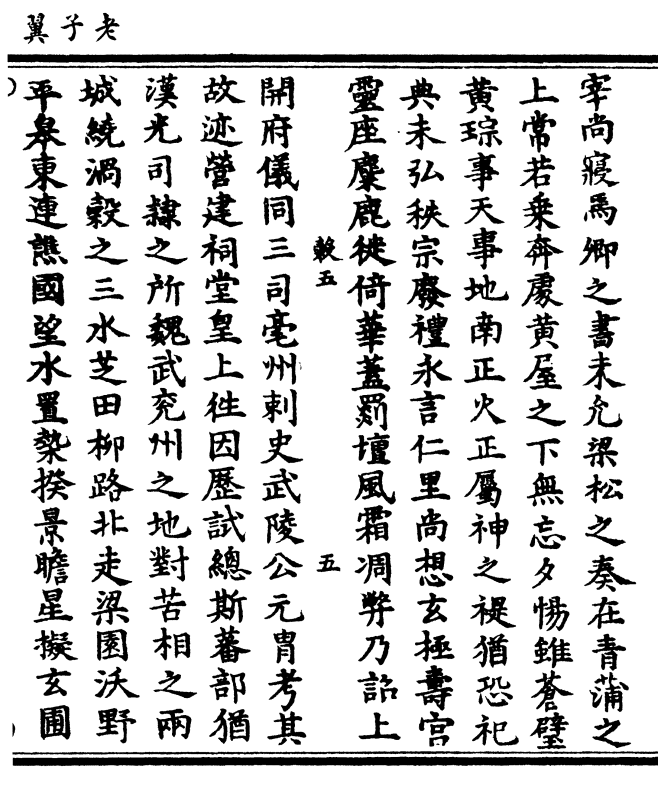 老子翼
宰尚寢馬卿之書未允梁松之奏在青蒲之
上常若乗奔處黄屋之下無忘夕惕雖蒼璧
黄琮事天事地南正火正屬神之禔猶恐祀
典未弘秩宗廢禮永言仁里尚想玄極壽宫
靈座麋鹿徙倚華蓋罽壇風霜凋弊乃詔上
轂五
五
開府儀同三司亳州刺史武陵公元胄考其
故迹營建祠堂皇上往因歷試總斯蕃部猶
漢光司隸之所魏武兗州之地對苦相之兩
城繞渦穀之三水芝田柳路北走梁園沃野
平皋東連譙國望水置槷揆景瞻星擬玄圃